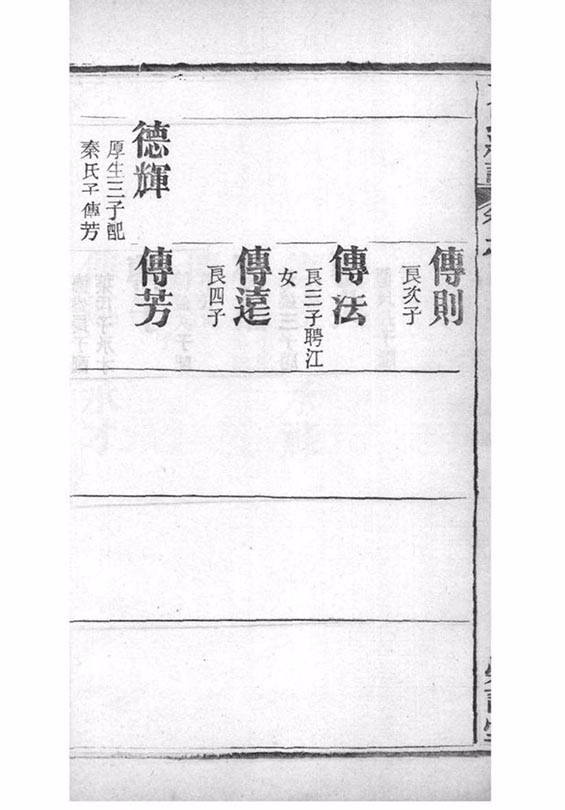 傳則
艮次子
傳法
艮三子聘江
女
傳遠
艮四子
德輝
厚生三子配
秦氏子傳芳
傳芳